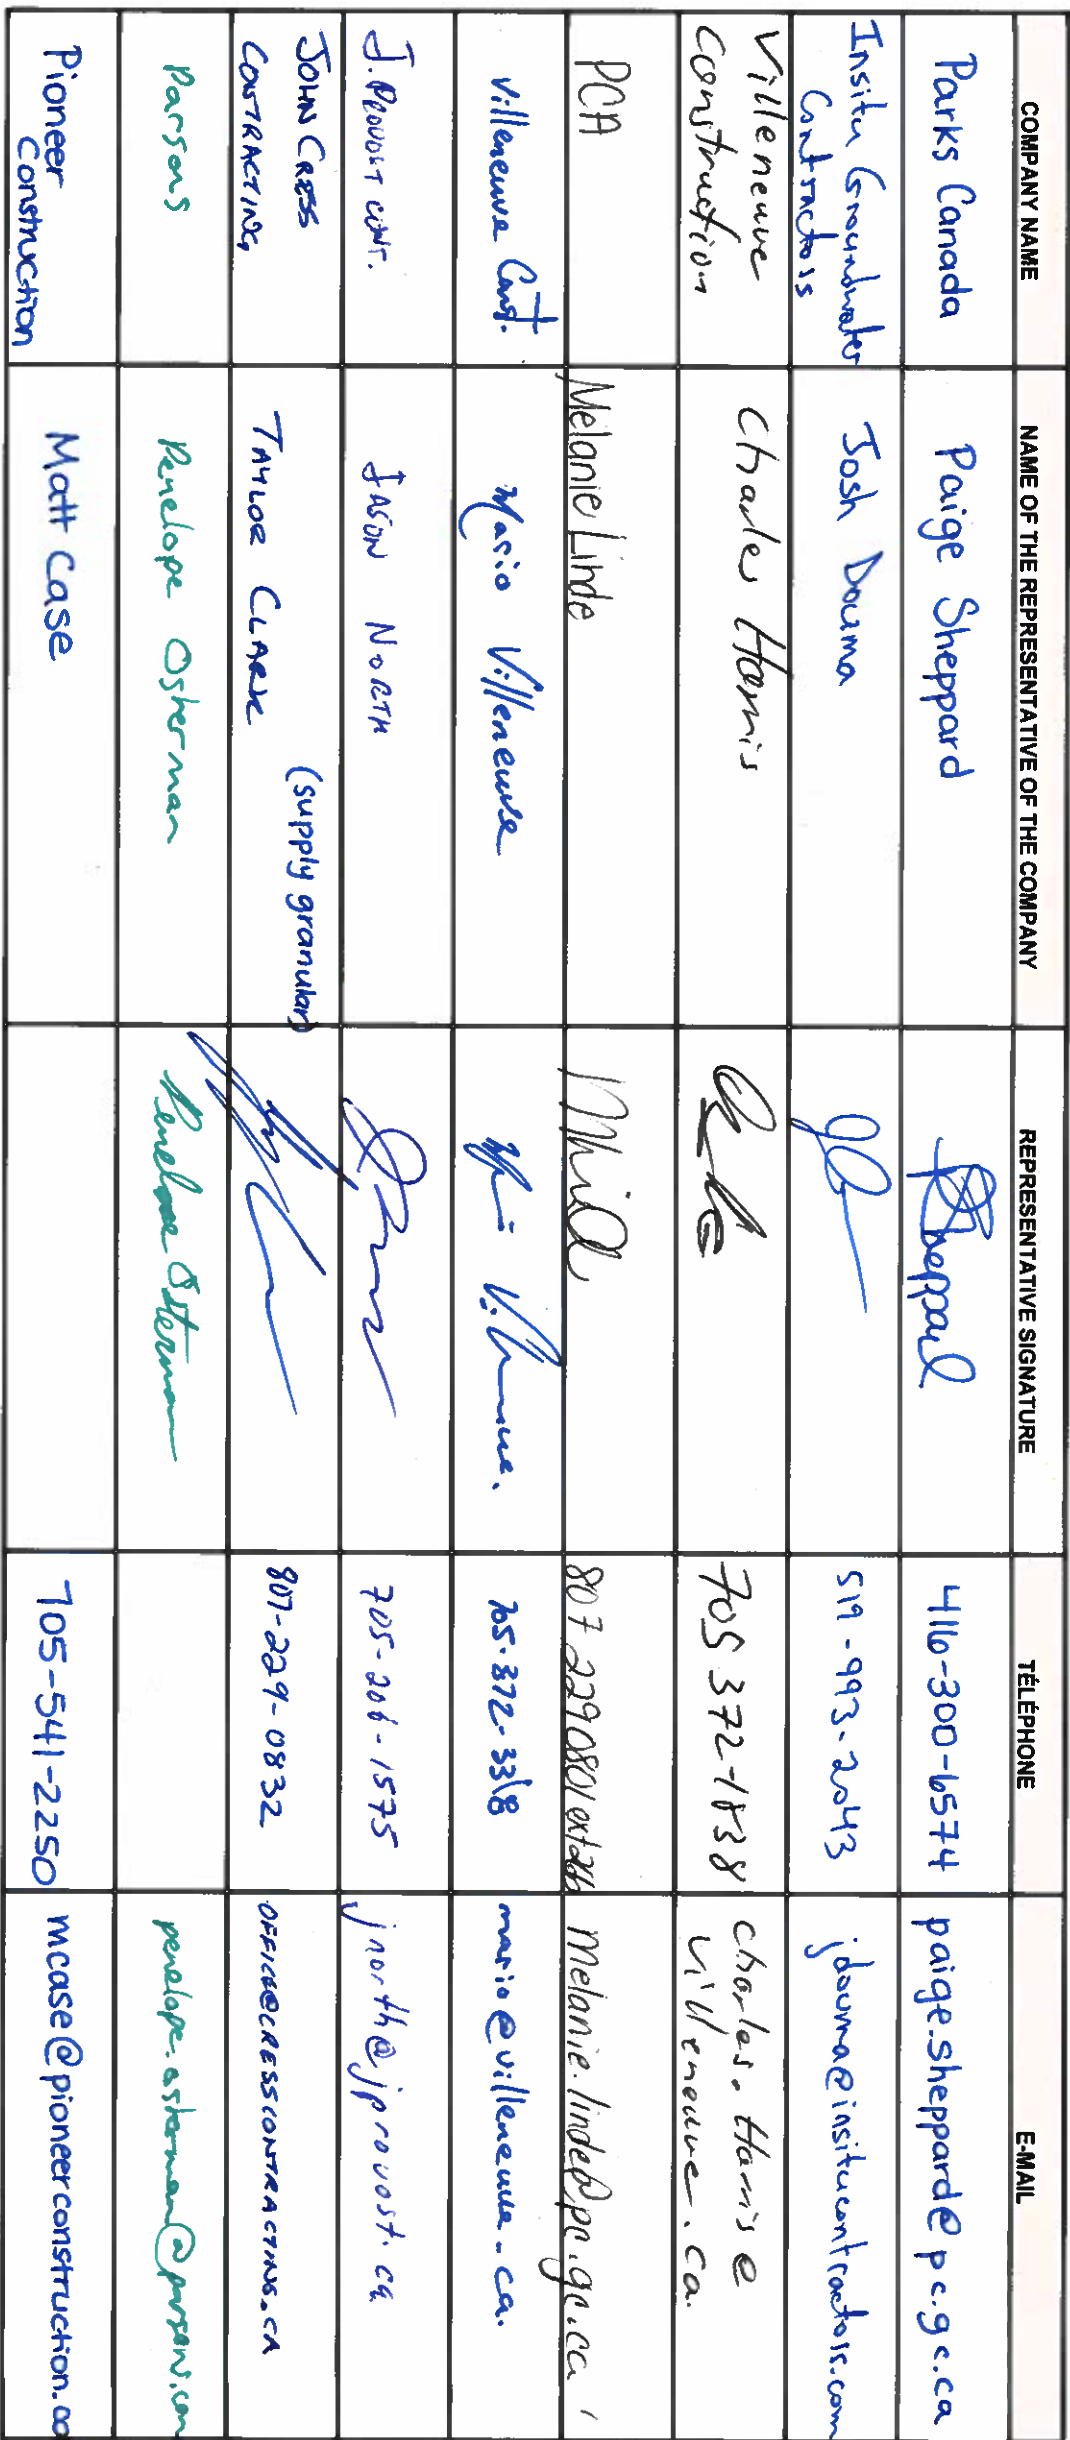 COMPANY NAME NAME OF THE REPRESENTATIVE OF THE COMPANY REPRESENTATIVE SIGNATURE TÉLÉPHONE E-MAIL
Parks Canada Paige Sheppard Sheppard 416-300-6574 paige.sheppard@pc.gc.ca
Insitu Groundwater Josh Douma 519-993-2043 jdouma@insitucontractors.com
Contractors
Villeneuve Charles Harris 705 372-1838 charles.Harris@
Construction villeneuve.ca.
PCA Melanie Linde 807 2290801 ext Melanie.linde@pc.gc.ca
Villeneuve Const. Mario Villeneuve 705-372-3318 mario@villeneuve.ca.
J. PROVOST CONT. JASON NORTH 705-206-1575 jnorth@jprovost.ca
JOHN CRESS (supply granular)
CONTRACTING TAYLOR CLARK 807-229-0832 OFFICE@CRESSCONTRACTING.CA
Parsons Penelope Osterman Penelope Osterman penelope.osterman@parsons.com
Pioneer Matt Case 705-541-2250 mcase@pioneerconstruction.ca
Construction